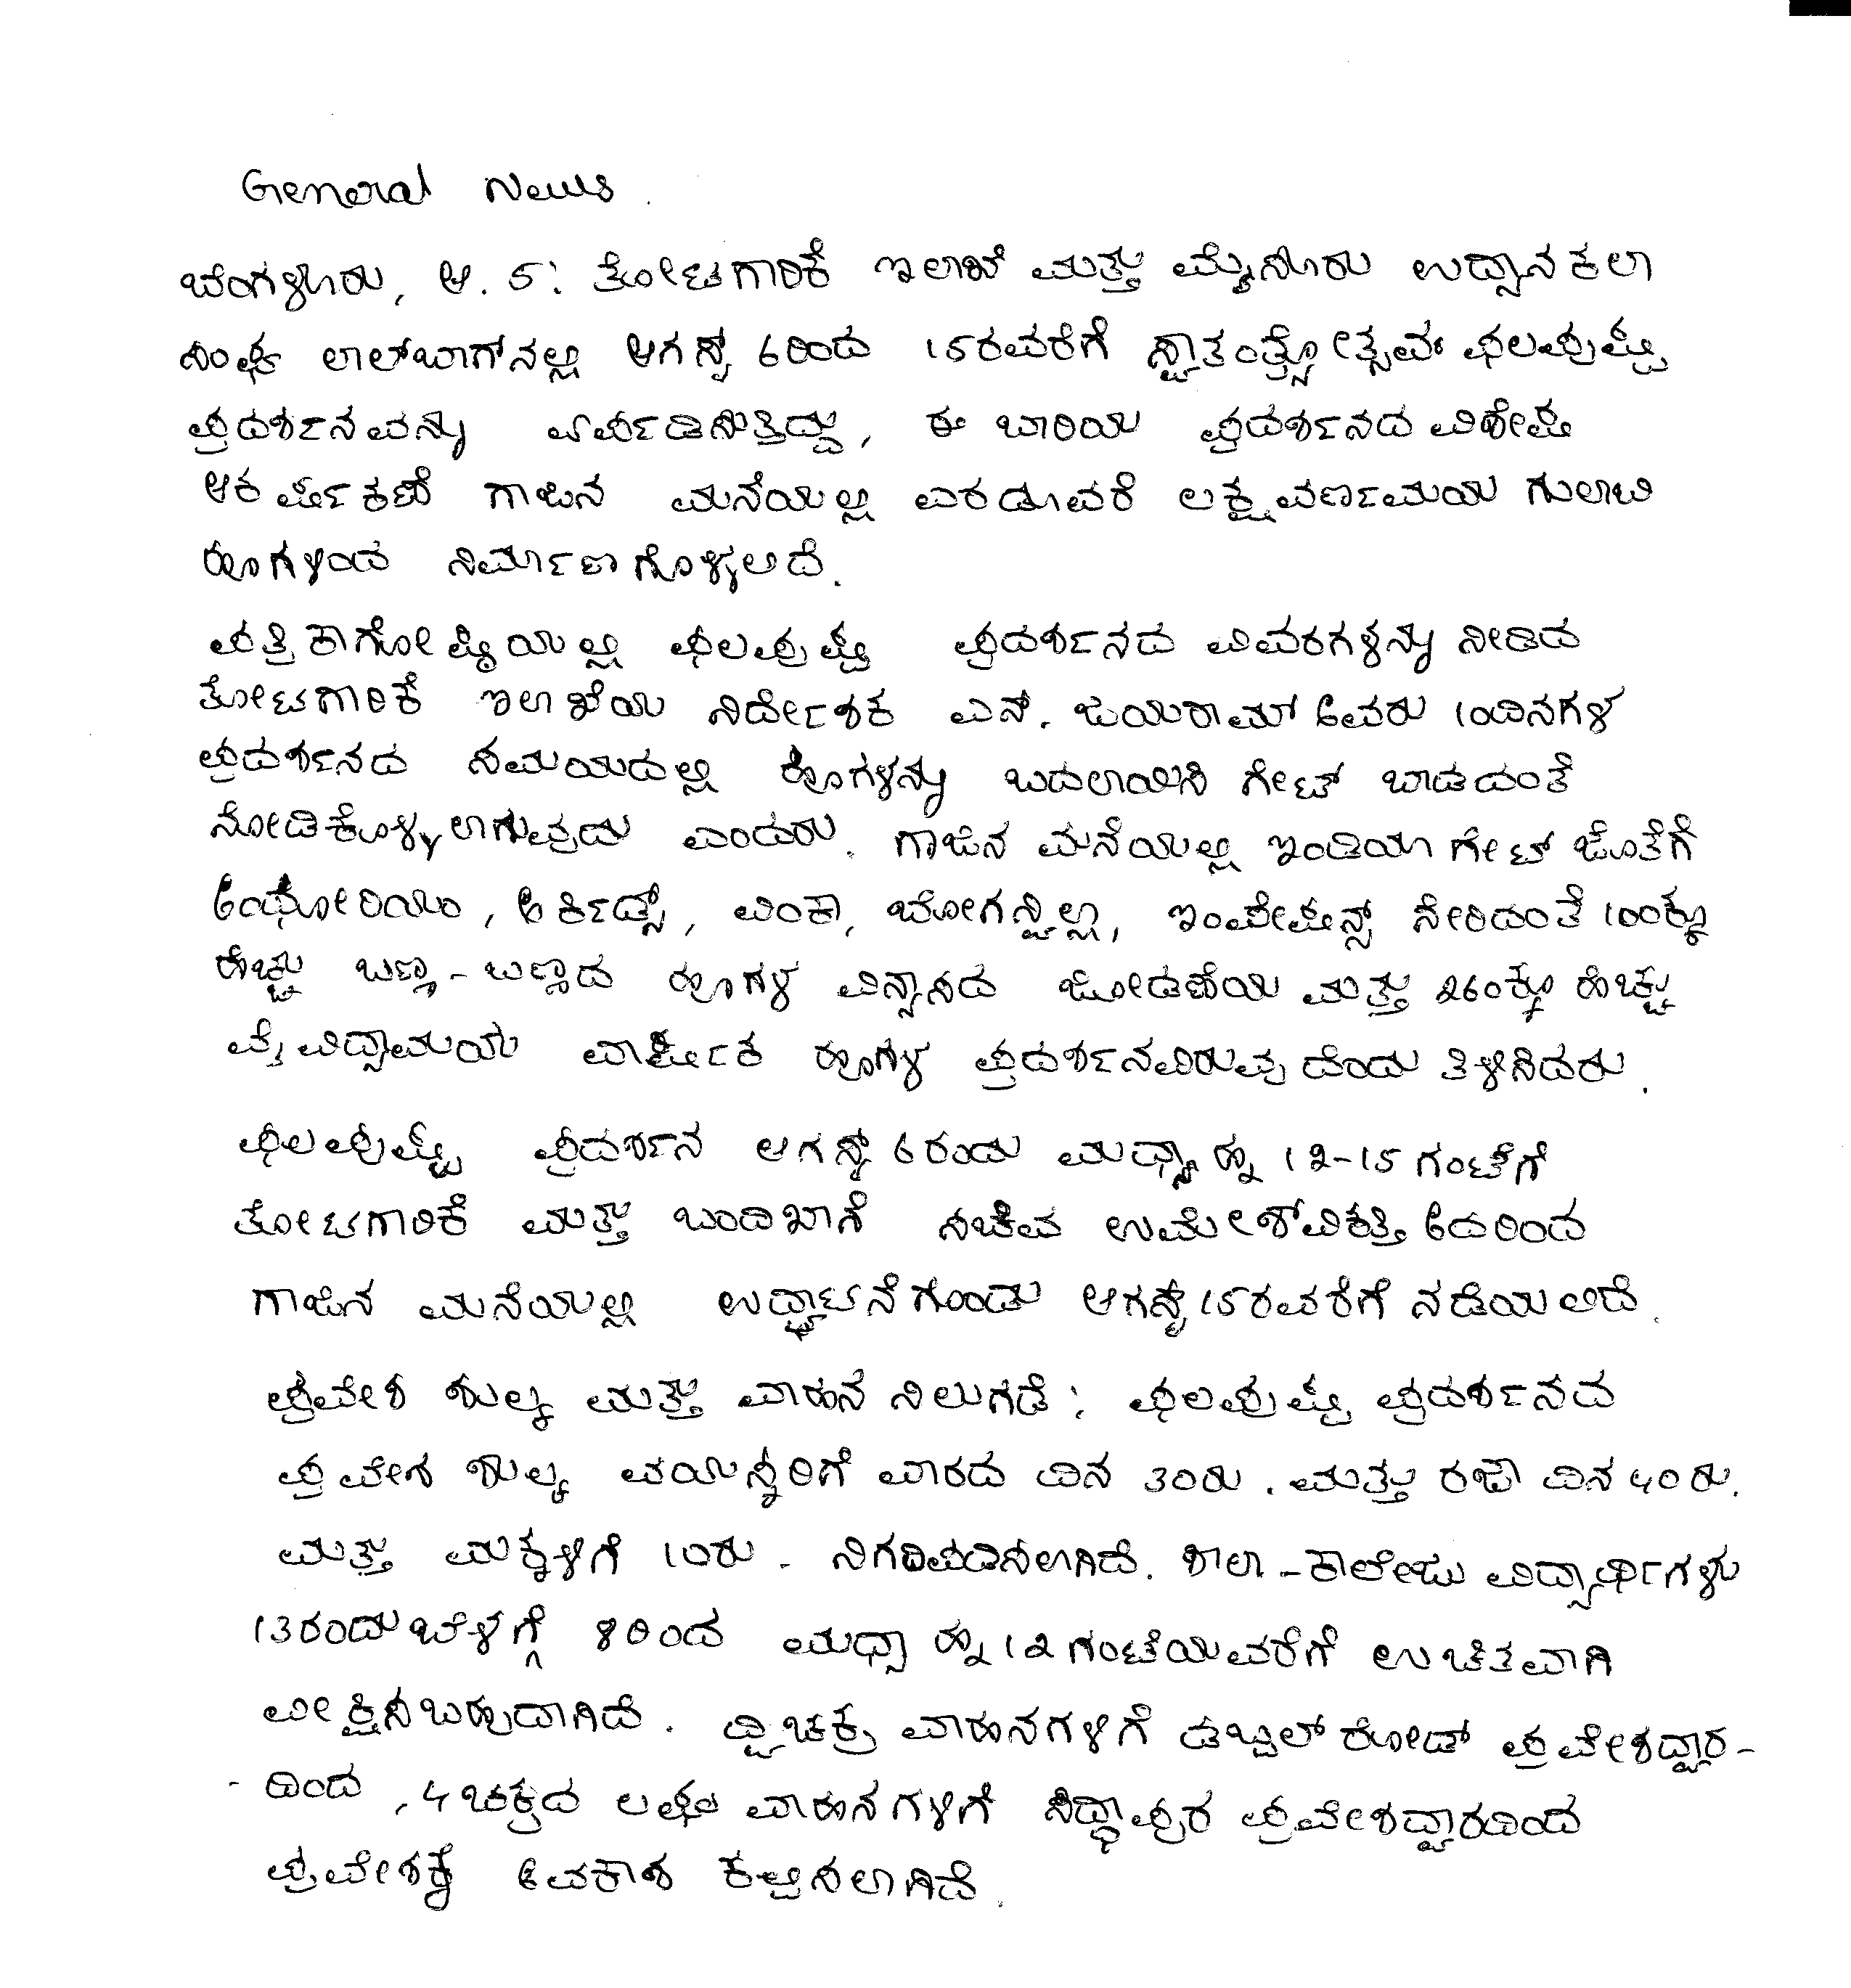 General News.
ಬೆಂಗಳೂರು, ಆ. 5: ತೋಟಗಾರಿಕೆ ಇಲಾಖೆ ಮತ್ತು ಮೈಸೂರು ಉದ್ಯಾನಕಲಾ
ಸಂಘ ಲಾಲ್‌ಬಾಗ್‌ನಲ್ಲಿ ಆಗಸ್ಟ್ 6ರಿಂದ 15ರವರೆಗೆ ಸ್ವಾತಂತ್ರ್ಯೋತ್ಸವ ಫಲಪುಷ್ಪ
ಪ್ರದರ್ಶನವನ್ನು ಏರ್ಪಡಿಸುತ್ತಿದ್ದು, ಈ ಬಾರಿಯ ಪ್ರದರ್ಶನದ ವಿಶೇಷ
ಆಕರ್ಷಕಣೆ ಗಾಜಿನ ಮನೆಯಲ್ಲಿ ಎರಡೂವರೆ ಲಕ್ಷ ವರ್ಣಮಯ ಗುಲಾಬಿ
ಹೂಗಳಿಂದ ನಿರ್ಮಾಣಗೊಳ್ಳಲಿದೆ.
ಪತ್ರಿಕಾಗೋಷ್ಠಿಯಲ್ಲಿ ಫಲಪುಷ್ಪ ಪ್ರದರ್ಶನದ ವಿವರಗಳನ್ನು ನೀಡಿದ
ತೋಟಗಾರಿಕೆ ಇಲಾಖೆಯ ನಿರ್ದೇಶಕ ಎನ್. ಜಯರಾಮ್ ಅವರು 10ದಿನಗಳ
ಪ್ರದರ್ಶನದ ಸಮಯದಲ್ಲಿ ಹೂಗಳನ್ನು ಬದಲಾಯಿಸಿ ಗೇಟ್ ಬಾಡದಂತೆ
ನೋಡಿಕೊಳ್ಳಲಾಗುವುದು ಎಂದರು. ಗಾಜಿನ ಮನೆಯಲ್ಲಿ ಇಂಡಿಯಾ ಗೇಟ್ ಜೊತೆಗೆ
ಅಂಥೋರಿಯಂ, ಆರ್ಕಿಡ್ಸ್, ವಿಂಕಾ, ಬೋಗನ್ವಿಲ್ಲಾ, ಇಂಪೇಷನ್ಸ್ ಸೇರಿದಂತೆ 100ಕ್ಕೂ
ಹೆಚ್ಚು ಬಣ್ಣ-ಬಣ್ಣದ ಹೂಗಳ ವಿನ್ಯಾಸದ ಜೋಡಣೆಯ ಮತ್ತು 260ಕ್ಕೂ ಹೆಚ್ಚು
ವೈವಿಧ್ಯಾಮಯ ವಾರ್ಷಿಕ ಹೂಗಳ ಪ್ರದರ್ಶನವಿರುವುದೆಂದು ತಿಳಿಸಿದರು.
ಫಲಪುಷ್ಪ ಪ್ರದರ್ಶನ ಆಗಸ್ಟ್ 6ರಂದು ಮಧ್ಯಾಹ್ನ 12-15 ಗಂಟೆಗೆ
ತೋಟಗಾರಿಕೆ ಮತ್ತು ಬಂದಿಖಾನೆ ಸಚಿವ ಉಮೇಶ್‌ವಿಕತ್ತಿ ಅವರಿಂದ
ಗಾಜಿನ ಮನೆಯಲ್ಲಿ ಉದ್ಘಾಟನೆಗೊಂಡು ಆಗಸ್ಟ್ 15ರವರೆಗೆ ನಡೆಯಲಿದೆ.
ಪ್ರವೇಶ ಶುಲ್ಕ ಮತ್ತು ವಾಹನ ನಿಲುಗಡೆ: ಫಲಪುಷ್ಪ ಪ್ರದರ್ಶನದ
ಪ್ರವೇಶ ಶುಲ್ಕ ವಯಸ್ಕರಿಗೆ ವಾರದ ದಿನ 30ರು. ಮತ್ತು ರಜಾ ದಿನ 40ರು.
ಮತ್ತು ಮಕ್ಕಳಿಗೆ 10ರು. ನಿಗದಿಪಡಿಸಲಾಗಿದೆ. ಶಾಲಾ-ಕಾಲೇಜು ವಿದ್ಯಾರ್ಥಿಗಳು
13ರಂದು ಬೆಳಗ್ಗೆ 8ರಿಂದ ಮಧ್ಯಾಹ್ನ 12 ಗಂಟೆಯವರೆಗೆ ಉಚಿತವಾಗಿ
ವೀಕ್ಷಿಸಬಹುದಾಗಿದೆ. ದ್ವಿಚಕ್ರ ವಾಹನಗಳಿಗೆ ಡಬ್ಬಲ್ ರೋಡ್ ಪ್ರವೇಶದ್ವಾರ-
-ದಿಂದ, 4 ಚಕ್ರದ ಲಘು ವಾಹನಗಳಿಗೆ ಸಿದ್ಧಾಪುರ ಪ್ರವೇಶದ್ವಾರದಿಂದ
ಪ್ರವೇಶಕ್ಕೆ ಅವಕಾಶ ಕಲ್ಪಿಸಲಾಗಿದೆ.